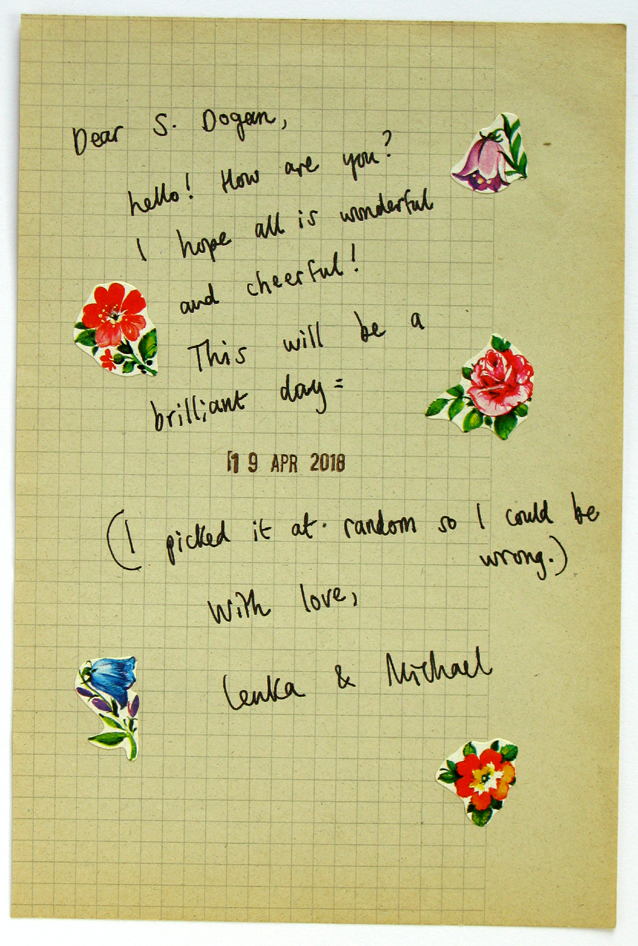 Dear S. Dogan,
hello! How are you?
I hope all is wonderful
and cheerful!
This will be a
brilliant day:
19 APR 2018
(I picked it at random so I could be
wrong.)
With love,
Lenka & Michael